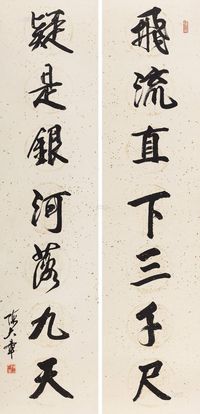 飛流直下三千尺
疑是銀河落九天
陳大章